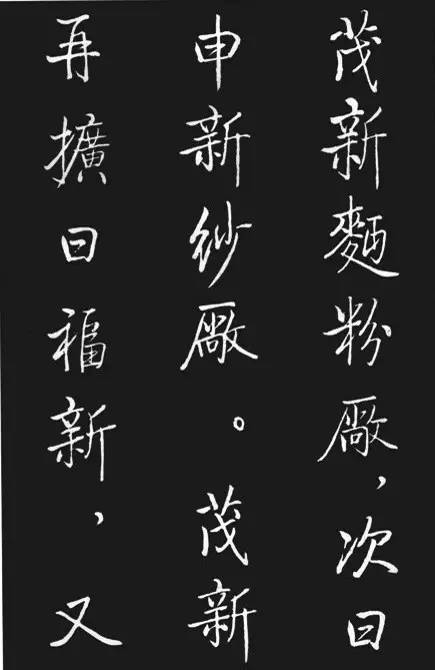 茂新麵粉廠，次曰
申新紗廠。茂新
再擴曰福新，又